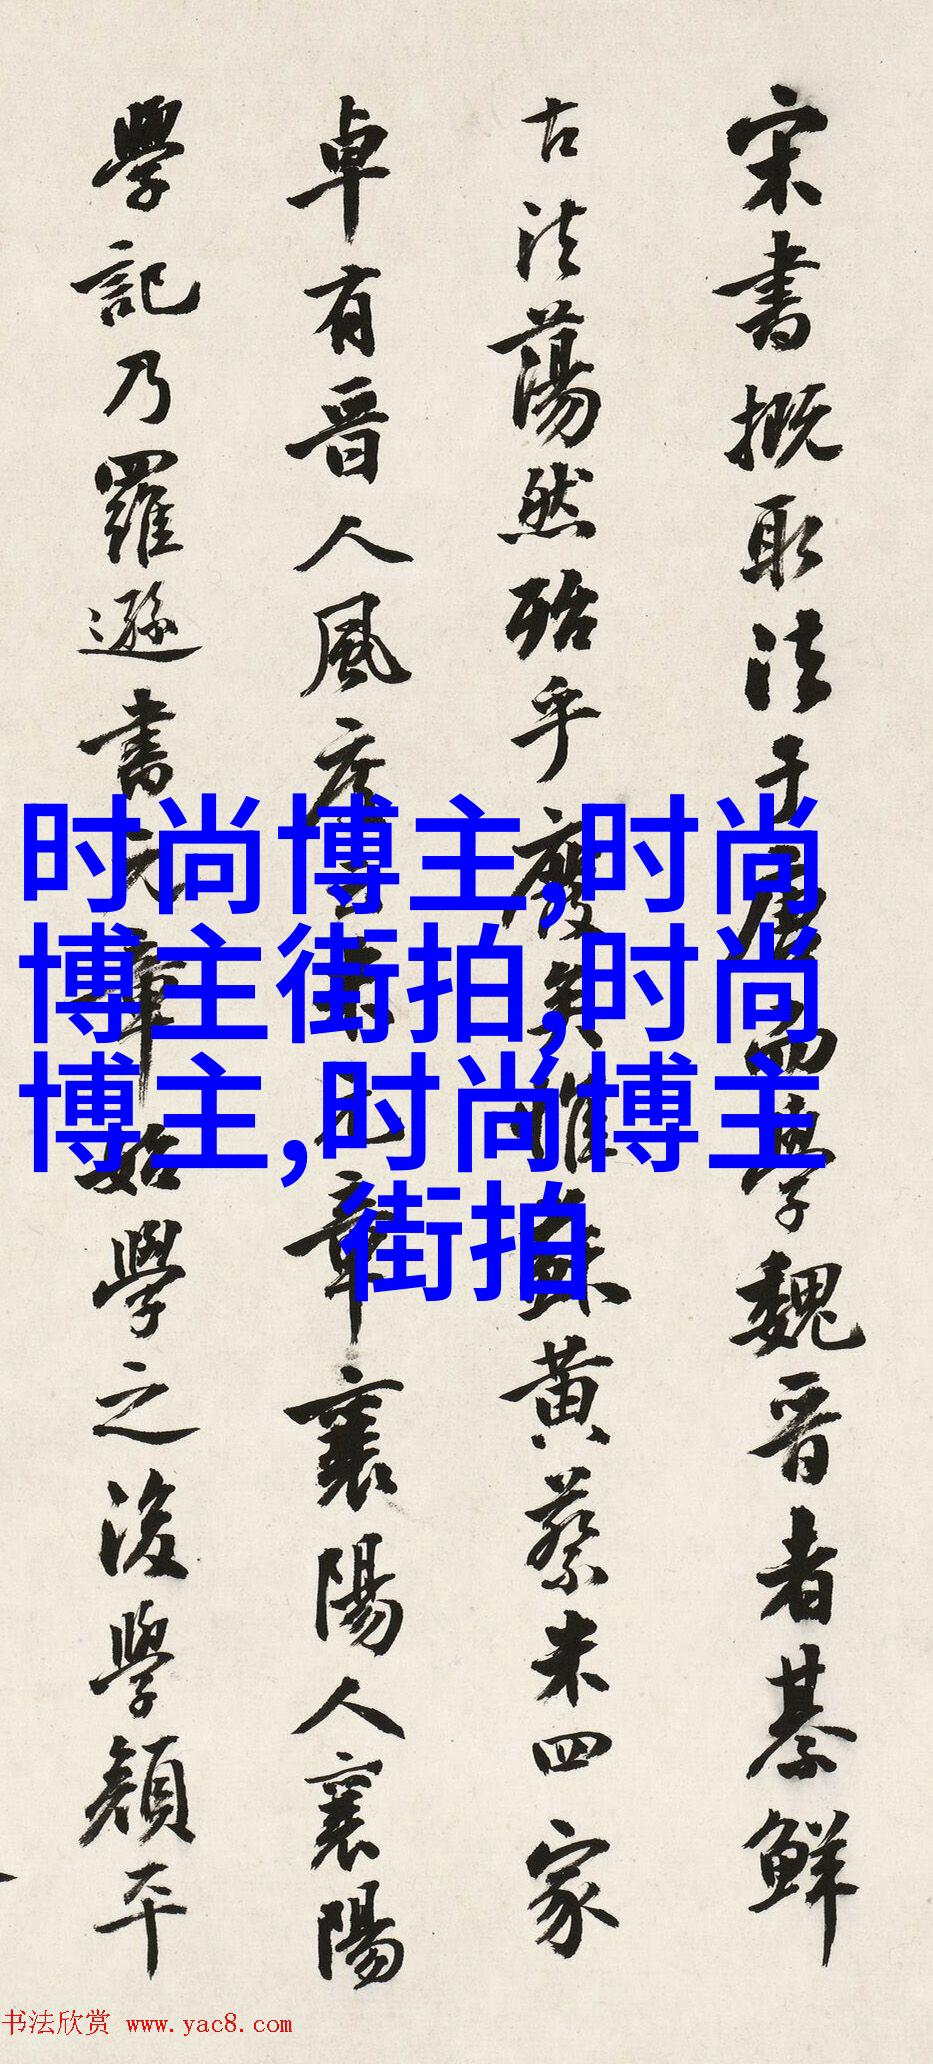 宋書概取法于唐而學魏晉者綦鮮
古法蕩然殆乎廢矣惟蘇黃蔡米四家
卓有晉人風度 元章襄陽人襄陽
學記乃羅遜書元章始學之後學顏平
时尚博主,时尚
博主街拍,时尚
博主,时尚博主
街拍
书法欣赏 www.yac8.com